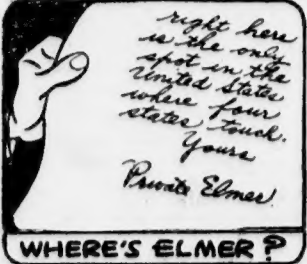 right here
is the only
spot in the
United States
where four
states touch.
Yours
Private Elmer
WHERE'S ELMER?